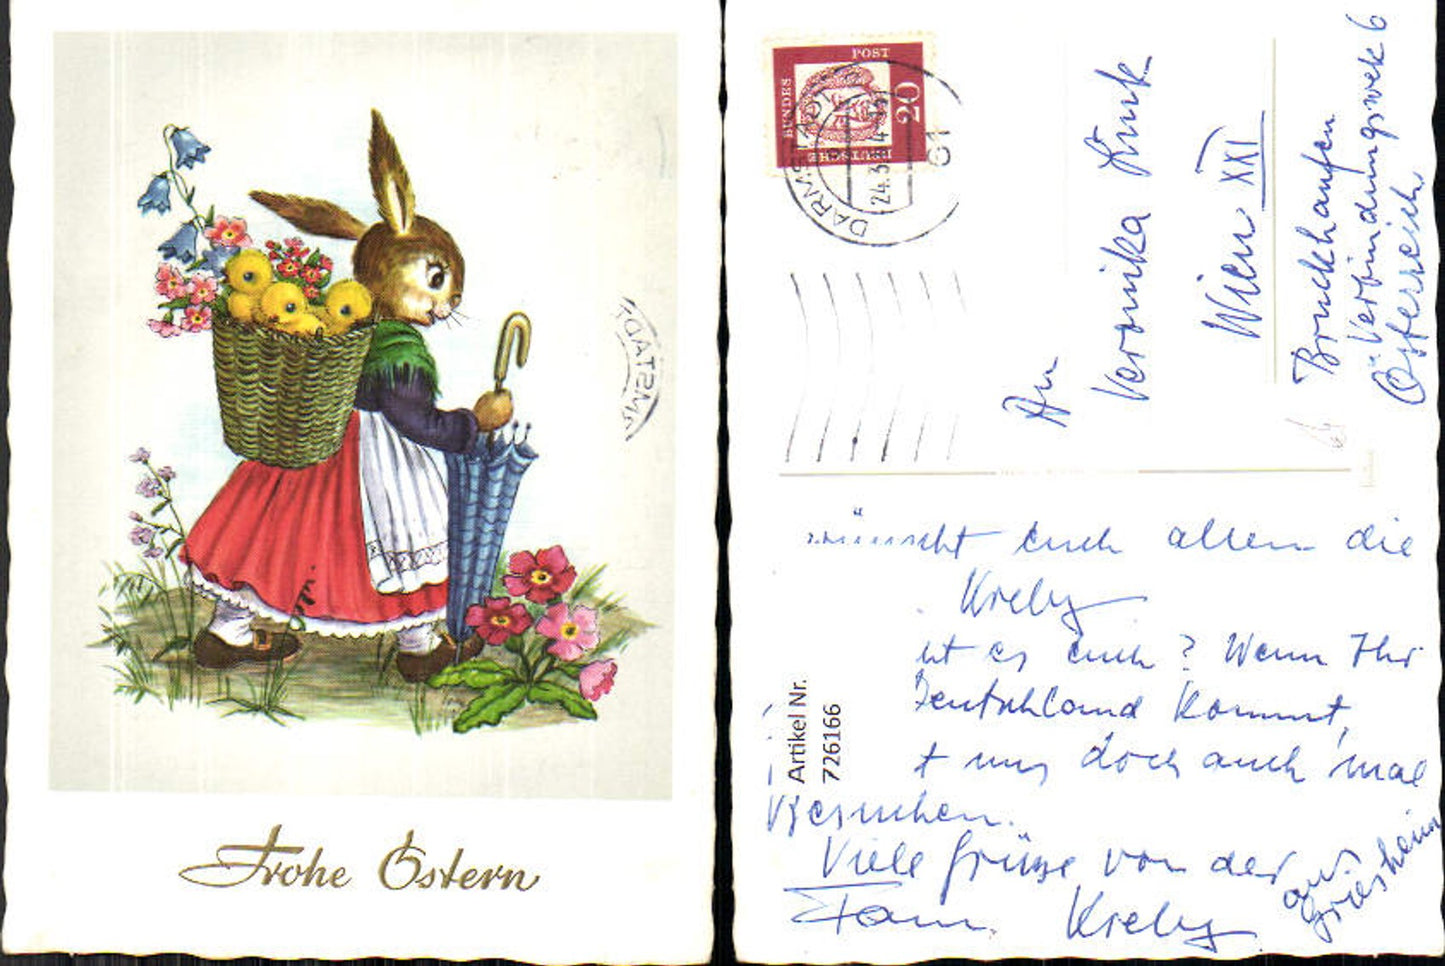 Frohe Ostern
POST
BUNDES
20
DEUTSCHE
DARMSTADT
24.3
61
An
Veronika
Wien XXI
Bruckhaufen
Österreich
wünscht euch allen die
es euch? Wenn Ihr
Deutschland kommt,
t uns doch auch 'mal
besuchen.
Viele Grüße von der
Fam.
aus
Griesheim
Artikel Nr.
726166